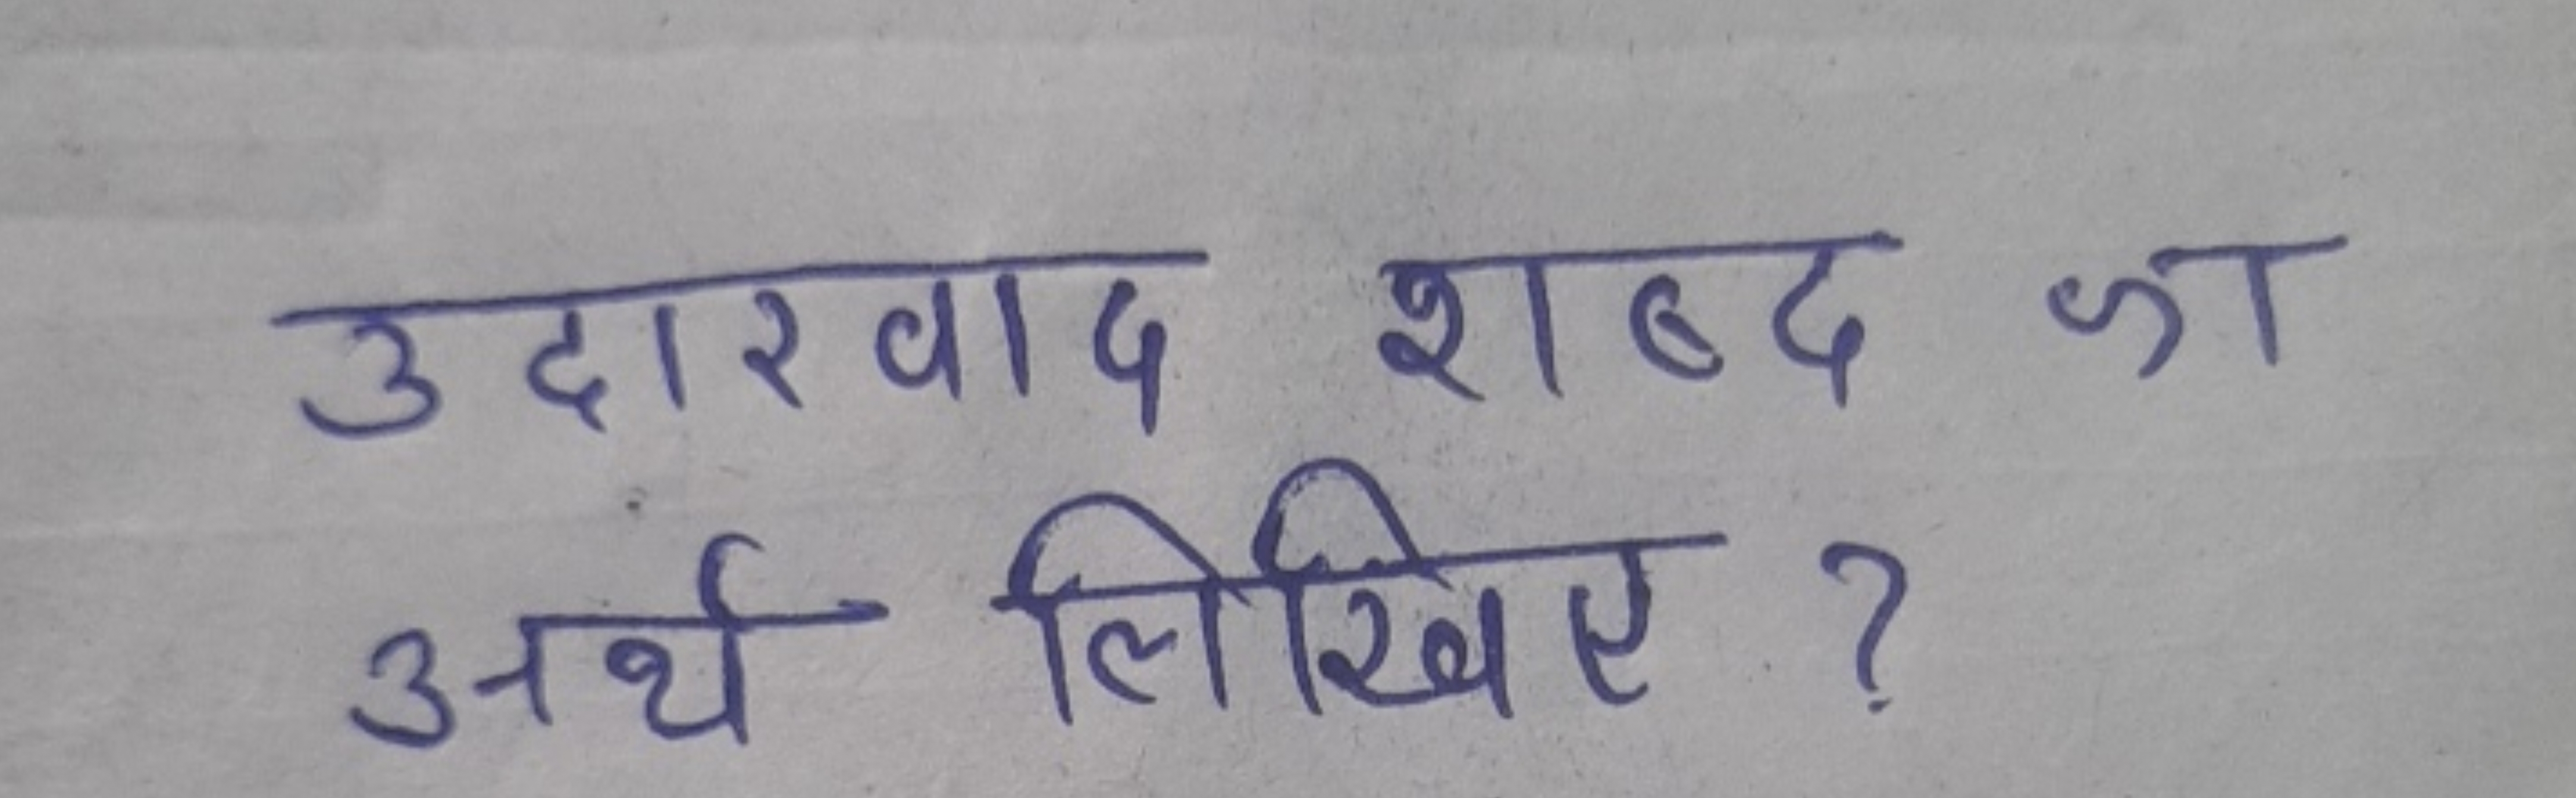 उदारवाद शब्द का
अर्थ लिखिए ?